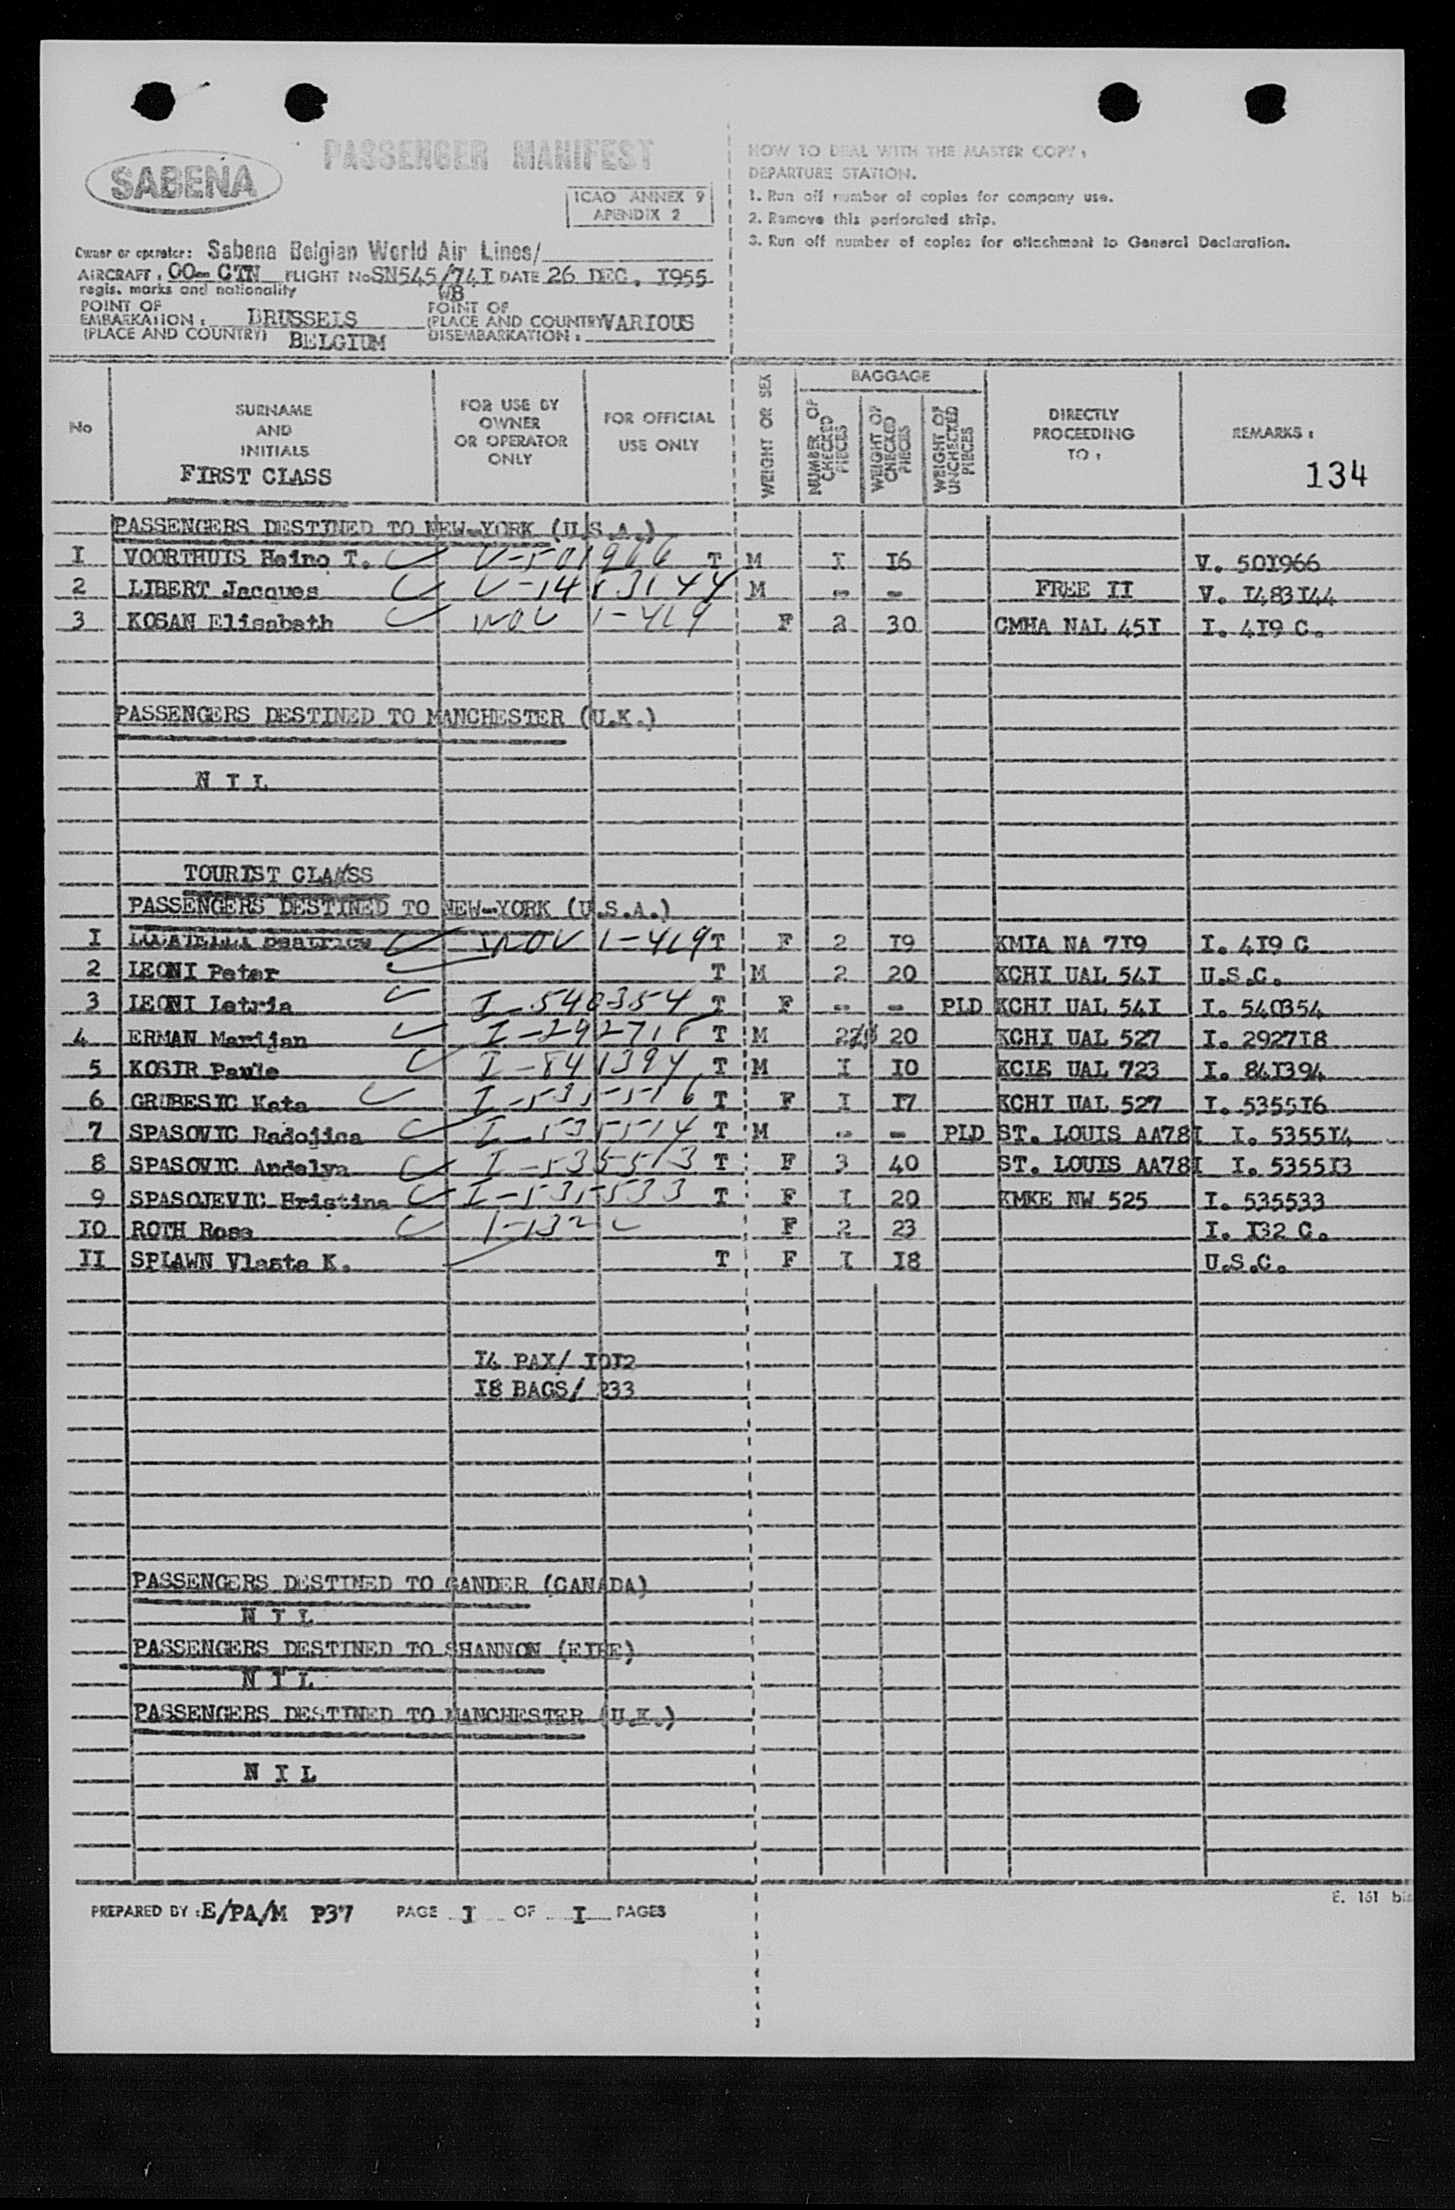 PASSENGER MANIFEST
SABENA
ICAO ANNEX 9
APENDIX 2
HOW TO DEAL WITH THE MASTER COPY :
DEPARTURE STATION.
1. Run off number of copies for company use.
2. Remove this perforated strip.
3. Run off number of copies for attachment to General Declaration.
Owner or operator: Sabena Belgian World Air Lines/
AIRCRAFT : OO-CTN FLIGHT No SN545/74I DATE 26 DEC. I955
regis. marks and nationality WB
POINT OF EMBARKATION : BRUSSELS POINT OF (PLACE AND COUNTRY) VARIOUS
(PLACE AND COUNTRY) BELGIUM DISEMBARKATION :
No
SURNAME AND INITIALS
FIRST CLASS
FOR USE BY OWNER OR OPERATOR ONLY
FOR OFFICIAL USE ONLY
WEIGHT OR SEX
BAGGAGE
NUMBER OF CHECKED PIECES
WEIGHT OF CHECKED PIECES
WEIGHT OF UNCHECKED PIECES
DIRECTLY PROCEEDING TO :
REMARKS :
134
PASSENGERS DESTINED TO NEW-YORK (U.S.A.)
I VOORTHUIS Heino T. V-501966 T M I I6 V. 50I966
2 LIBERT Jacques V-1483144 M - - FREE II V. I483I44
3 KOSAN Elisabeth NOV 1-419 F 2 30 CMHA NAL 45I I. 4I9 C.
PASSENGERS DESTINED TO MANCHESTER (U.K.)
N I L
TOURIST CLASS
PASSENGERS DESTINED TO NEW-YORK (U.S.A.)
I NOV 1-419 T F 2 I9 KMIA NA 7I9 I. 4I9 C
2 LEONI Peter T M 2 20 KCHI UAL 54I U.S.C.
3 LEONI Letria I-540354 T F - - PLD KCHI UAL 54I I. 540354
4 ERMAN Marijan I-292718 T M 2 20 KCHI UAL 527 I. 2927I8
5 KOSIR Paule I-841394 T M I I0 KCLE UAL 723 I. 84I394
6 GRUBESIC Kata I-535516 T F I I7 KCHI UAL 527 I. 5355I6
7 SPASOVIC Radojica I-535514 T M - - PLD ST. LOUIS AA78I I. 5355I4
8 SPASOVIC Andelya I-535513 T F 3 40 ST. LOUIS AA78I I. 5355I3
9 SPASOJEVIC Hristina I-535533 T F I 20 KMKE NW 525 I. 535533
I0 ROTH Rosa 1-132 C F 2 23 I. I32 C.
II SPLAWN Vlasta K. T F I I8 U.S.C.
I4 PAX/ I0I2
I8 BAGS/ 233
PASSENGERS DESTINED TO GANDER (CANADA)
N I L
PASSENGERS DESTINED TO SHANNON (EIRE)
N I L
PASSENGERS DESTINED TO MANCHESTER (U.K.)
N I L
E. 161 bis
PREPARED BY : E/PA/M P37 PAGE I OF I PAGES